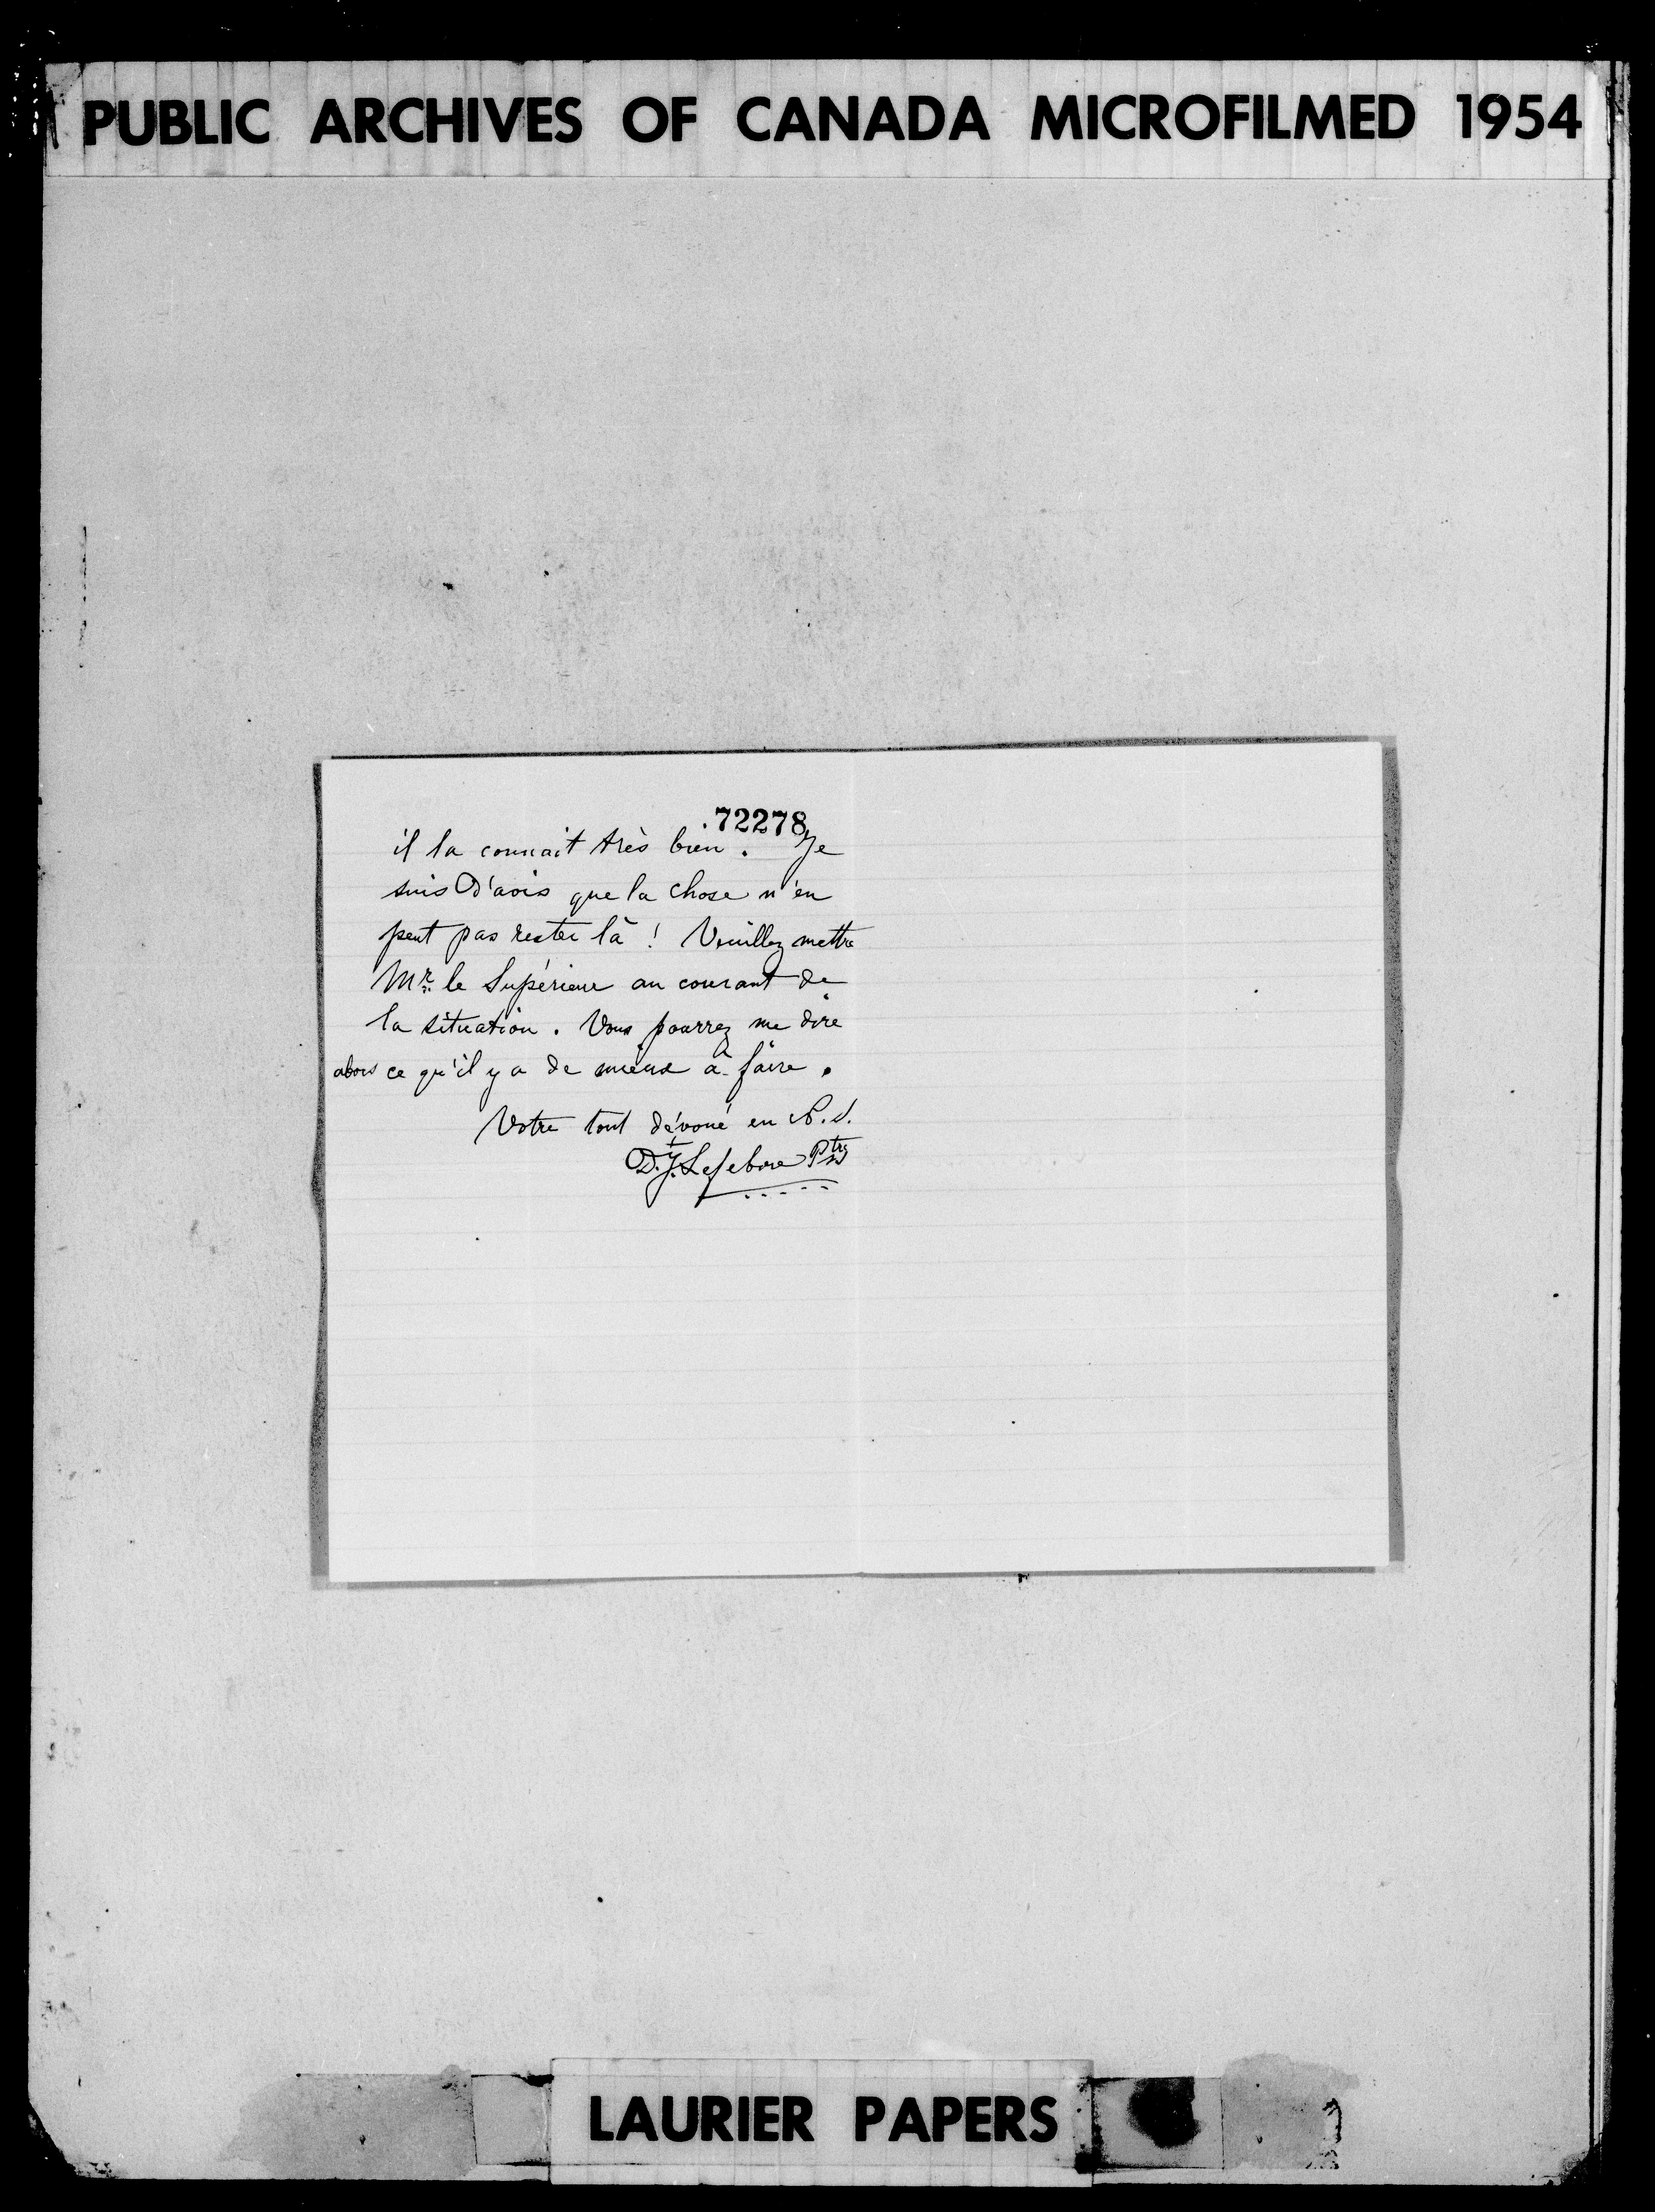 PUBLIC ARCHIVES OF CANADA MICROFILMED 1954
72278
il la connait très bien. Je
suis d'avis que la chose n'en
peut pas rester là ! Veuillez mettre
Mr. le Supérieur au courant de
la situation. Vous pourrez me dire
alors ce qu'il y a de mieux à faire.
Votre tout dévoué en N.S.
D. J. Lefebvre Ptre
LAURIER PAPERS